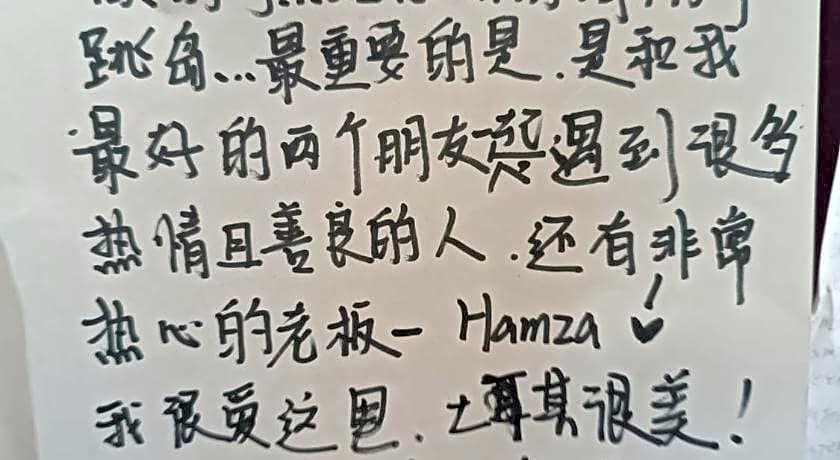 跳岛...最重要的是.是和我
最好的两个朋友一起遇到很多
热情且善良的人.还有非常
热心的老板- Hamza
我很爱这里.土耳其很美!